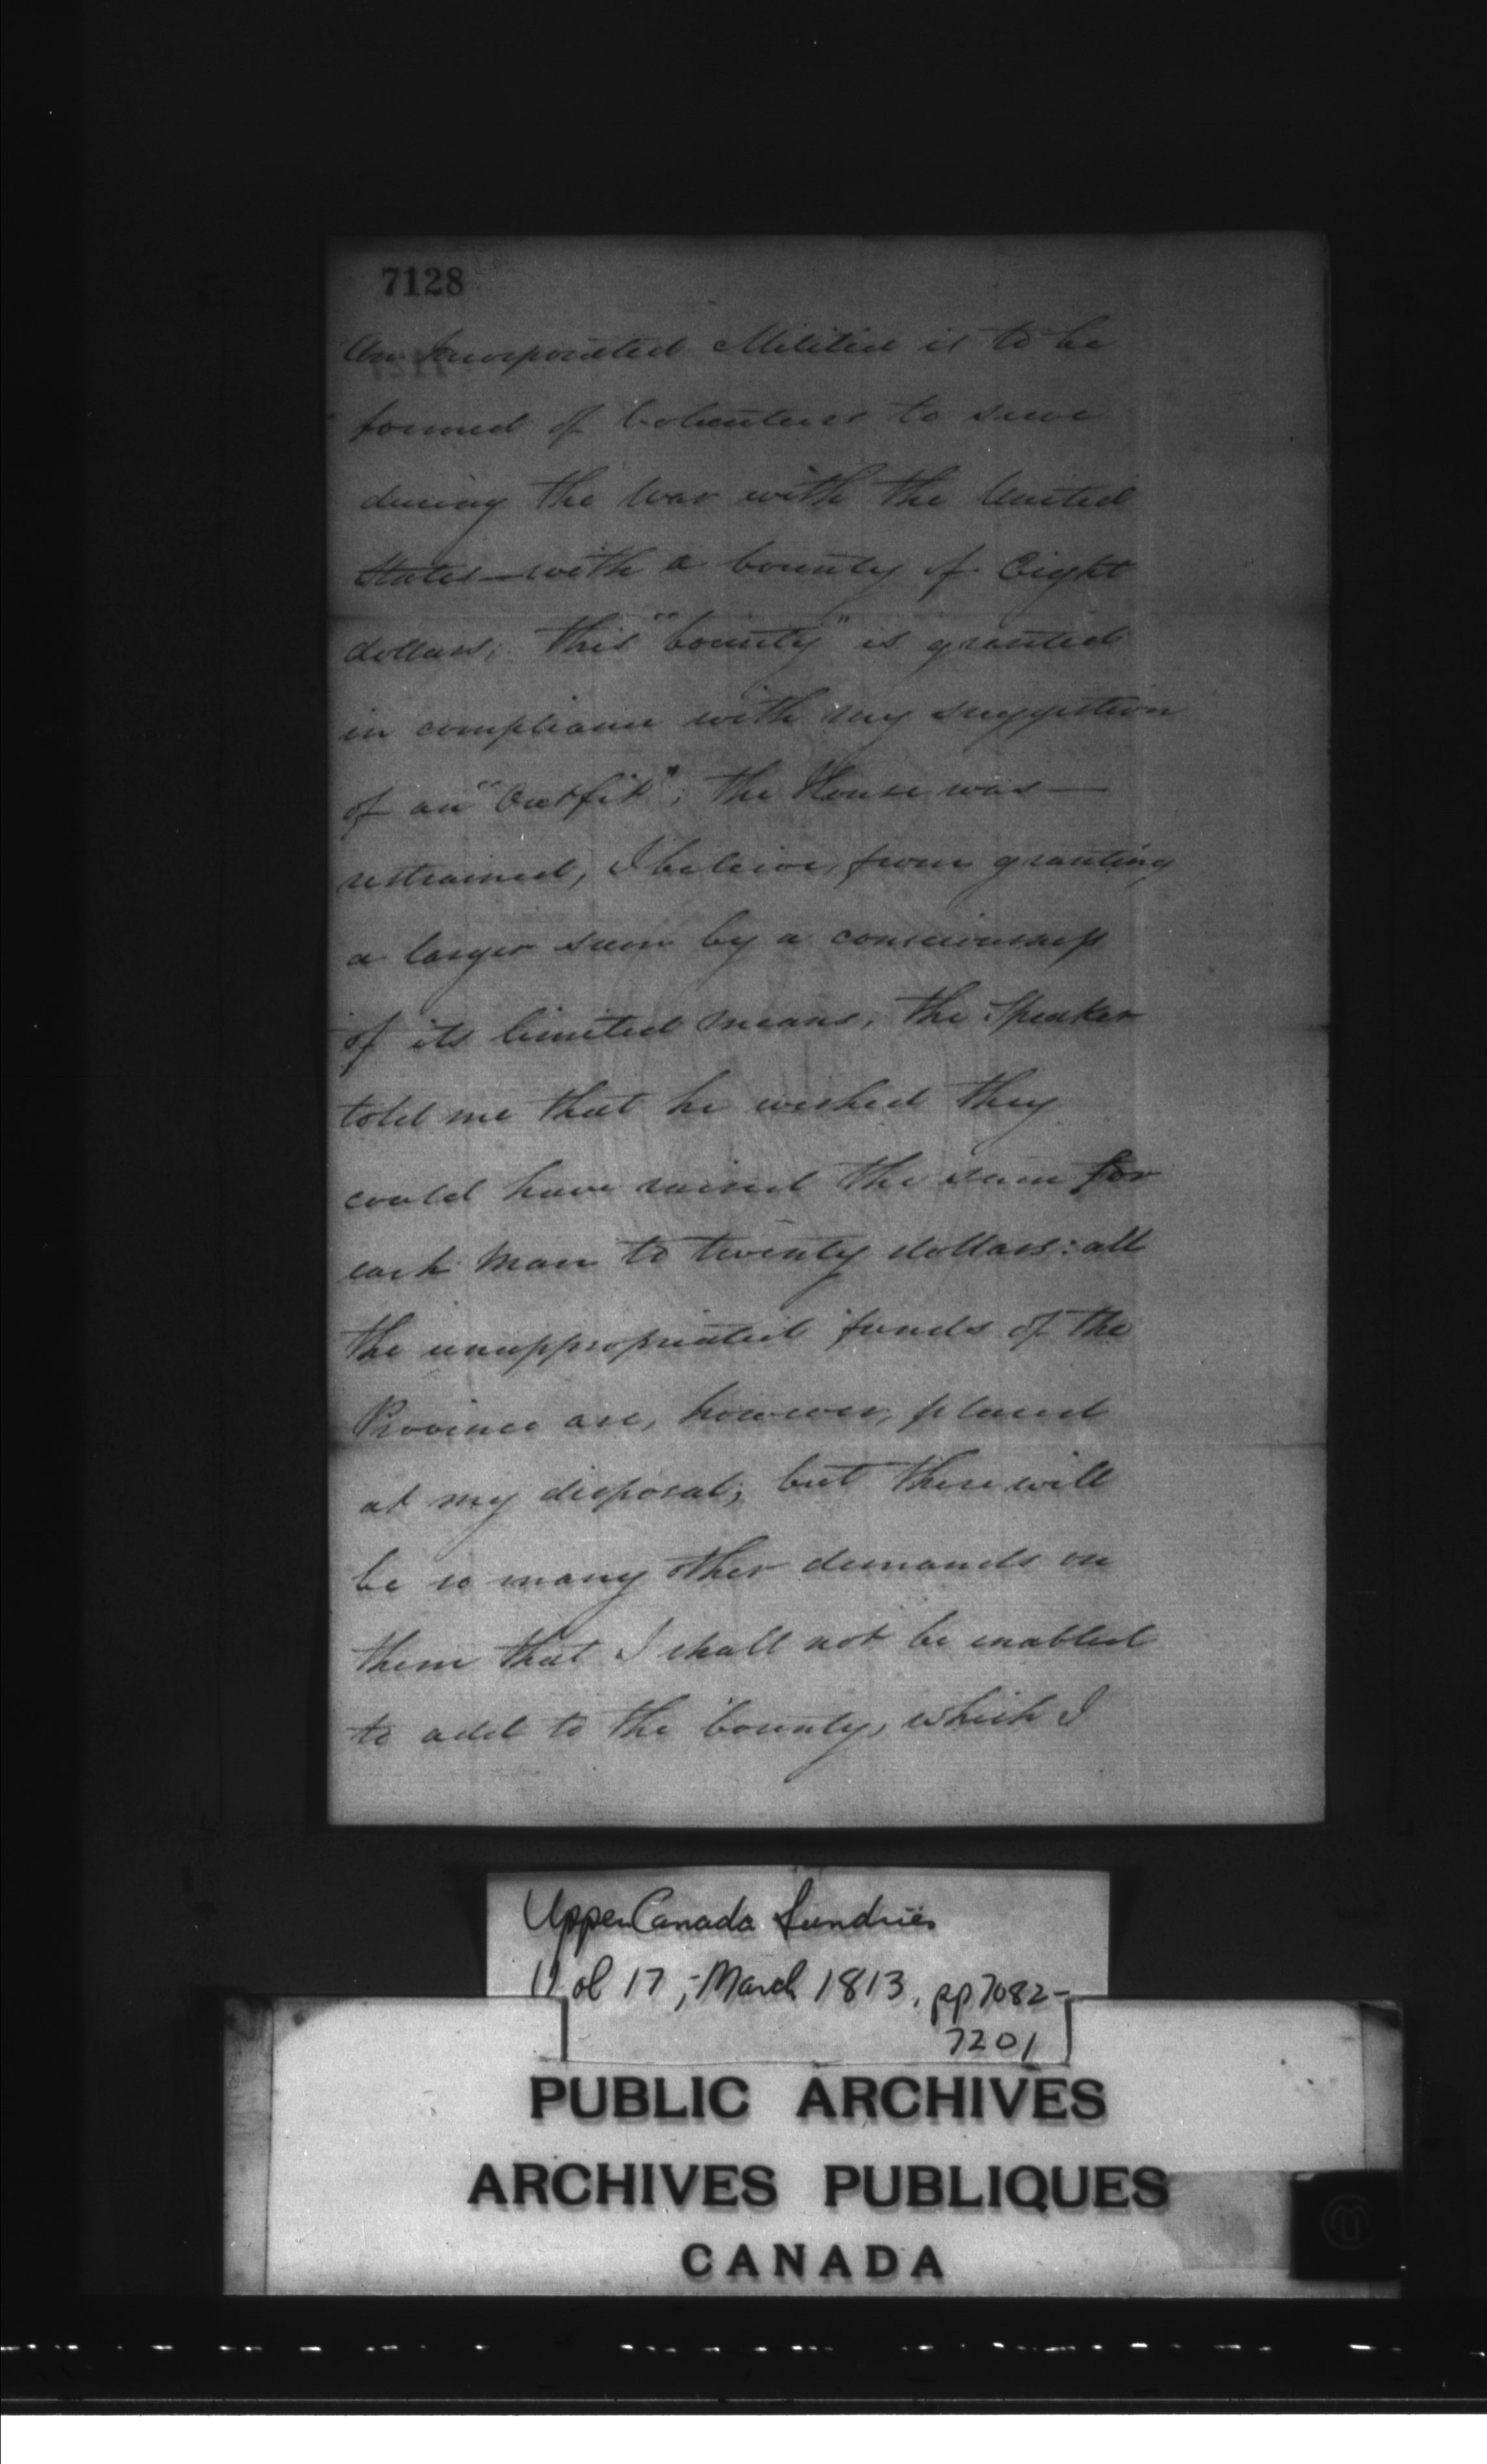 7128
An Incorporated Militia is to be
formed of Volunteers to serve
during the War with the United
States—with a bounty of Eight
dollars; this "bounty" is granted
in compliance with my suggestion
of an "Outfit"; the House was—
restrained, I believe, from granting
a larger sum by a consciousness
of its limited means; the Speaker
told me that he wished they
could have raised the sum for
each Man to twenty dollars: all
the unappropriated funds of the
Province are, however, placed
at my disposal; but there will
be so many other demands on
them that I shall not be enabled
to add to the bounty, which I
Upper Canada Sundries
Vol 17, March 1813, pp 7082-
7201
PUBLIC ARCHIVES
ARCHIVES PUBLIQUES
CANADA